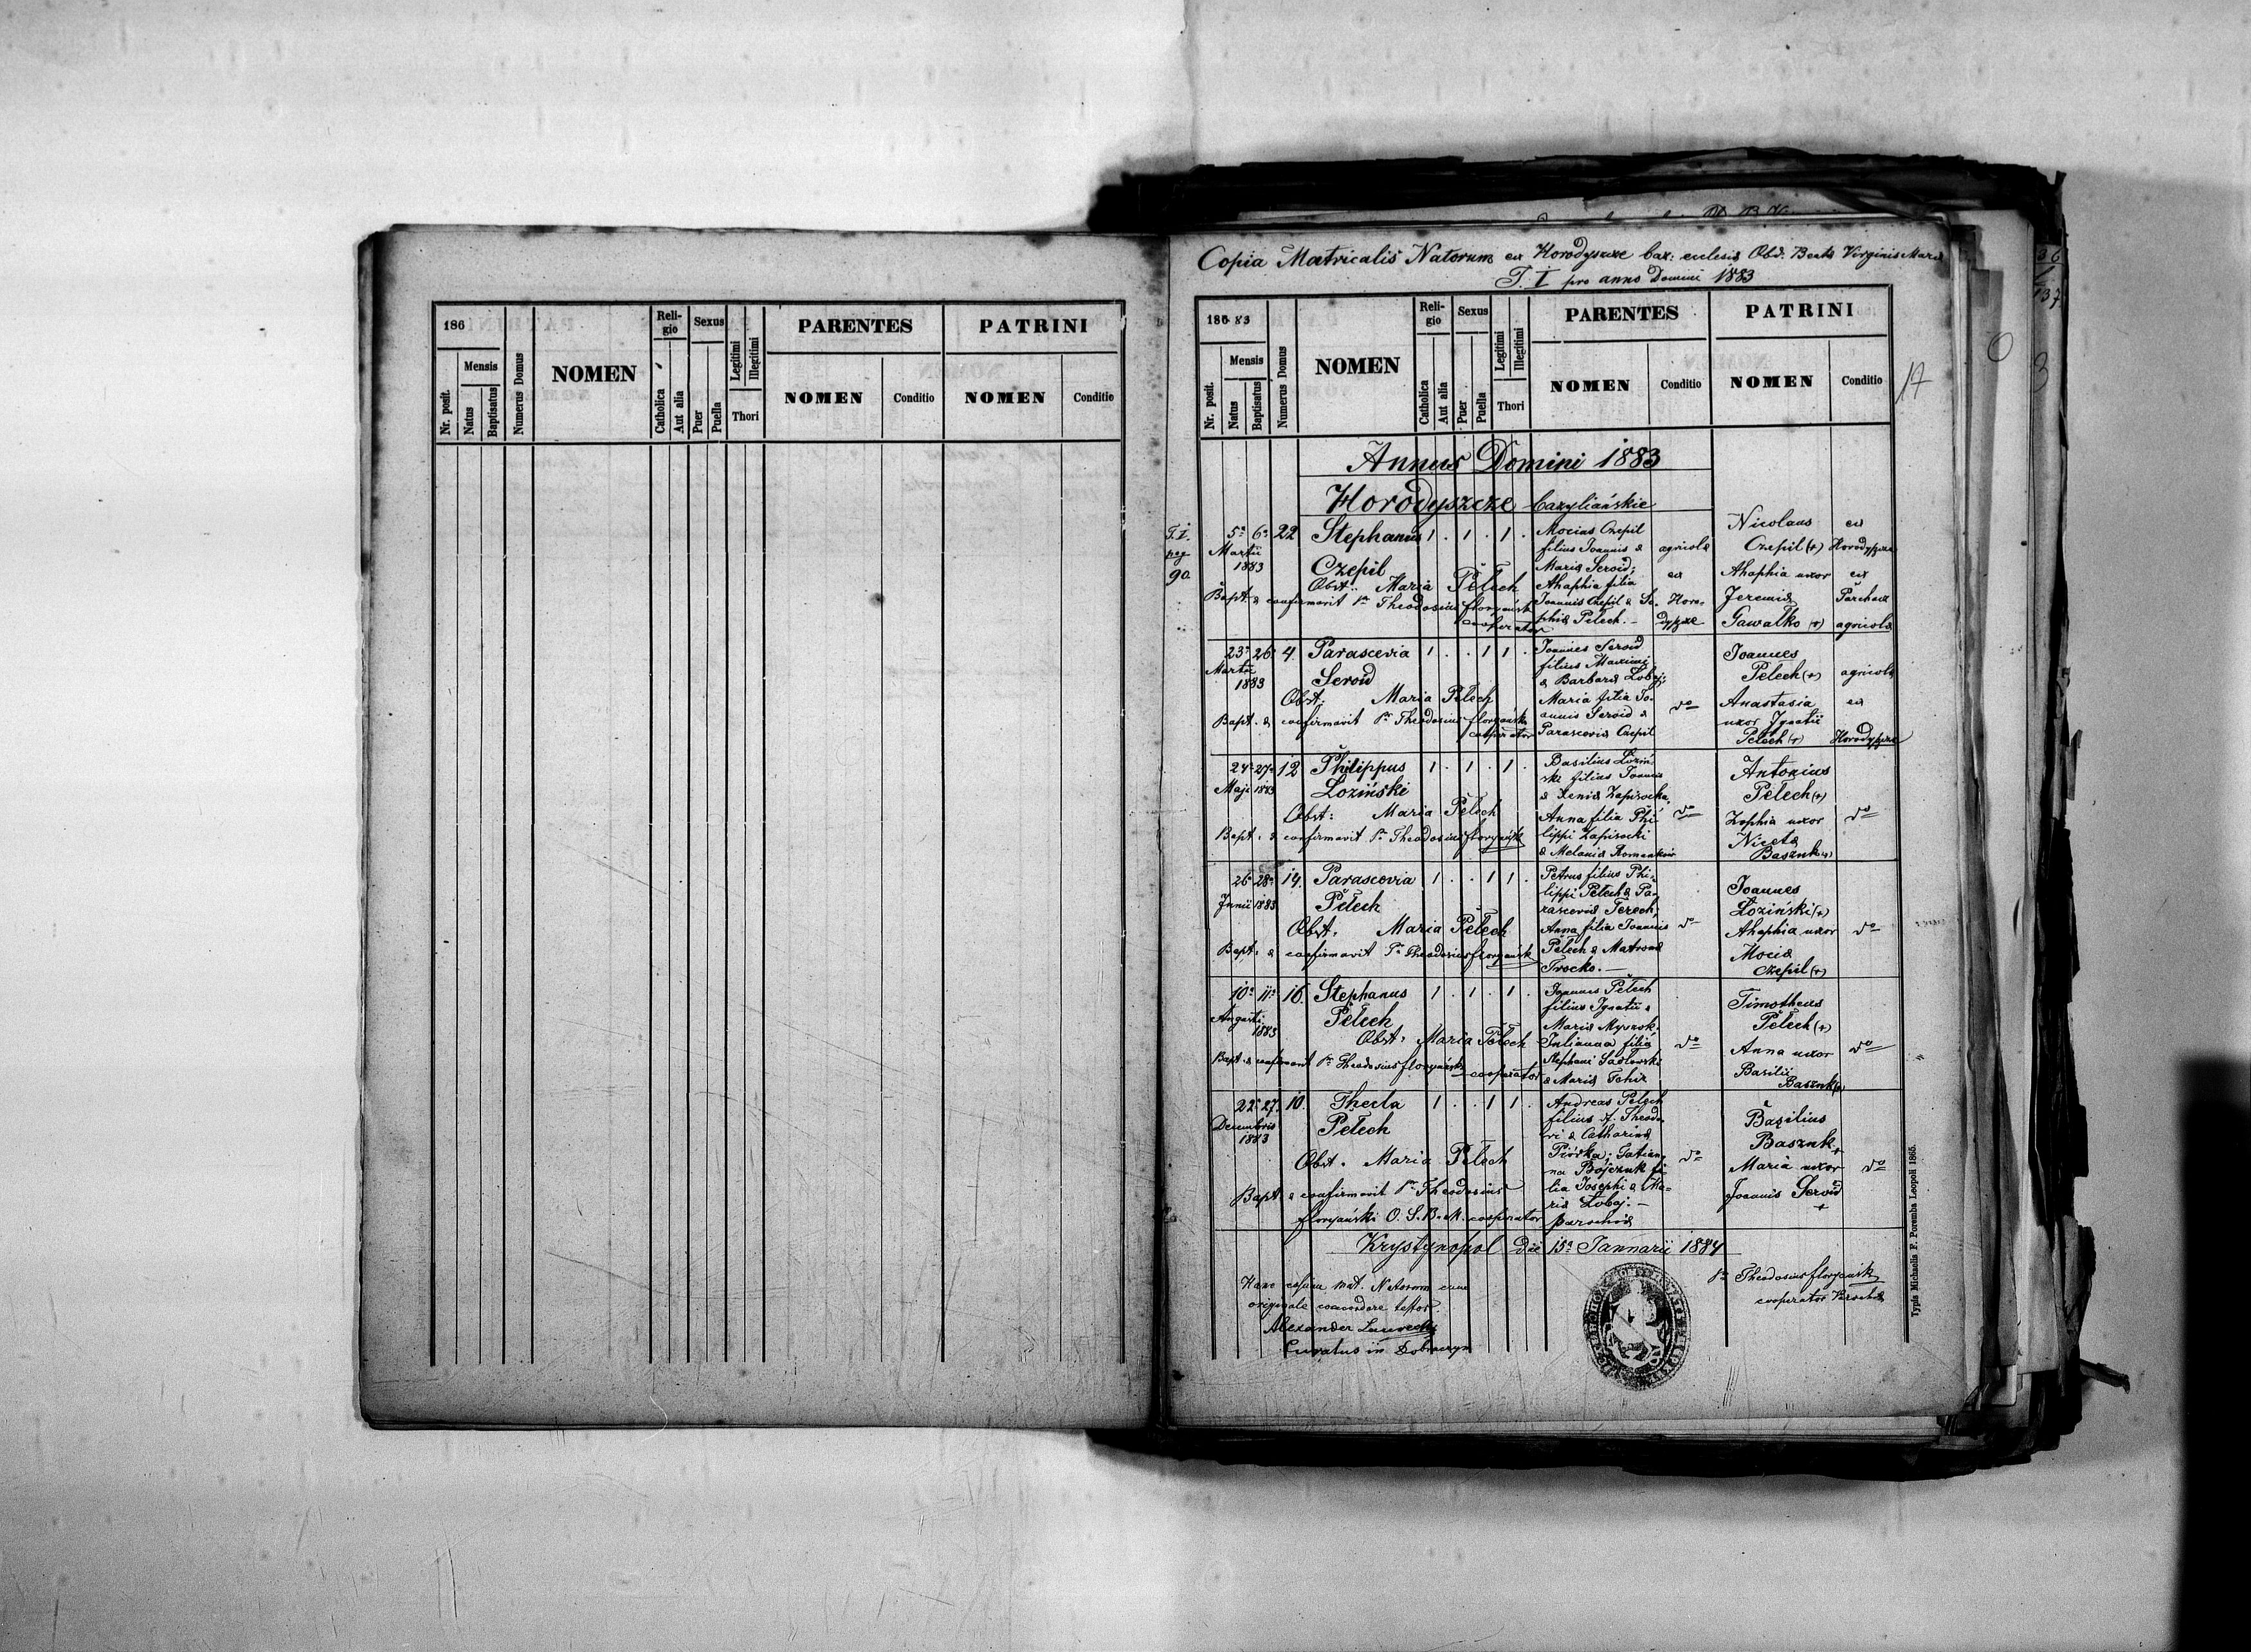 186
Nr. posit.
Mensis
Natus
Baptisatus
Numerus Domus
NOMEN
Religio
Catholica
Aut alia
Sexus
Puer
Puella
Legitimi
Illegitimi
Thori
PARENTES
NOMEN
Conditio
PATRINI
NOMEN
Conditio
Copia Matricalis Natorum ex Horodyszcze baz: ecclesiæ Obd. Beatæ Virginis Mariæ
T. I pro anno Domini 1883
17
186 83
Nr. posit.
Mensis
Natus
Baptisatus
Numerus Domus
NOMEN
Religio
Catholica
Aut alia
Sexus
Puer
Puella
Legitimi
Illegitimi
Thori
PARENTES
NOMEN
Conditio
PATRINI
NOMEN
Conditio
Annus Domini 1883
Horodyszcze bazyliańskie
T. I.
pag
90
5ª 6ª 22
Martii
1883
Stephanus
Czepil
1 . 1 . 1 .
Obst: Maria Pełech
Bapt. & confirmavit Pr Theodosius Floryański
cooperator
Mocius Czepil
filius Joannis &
Mariæ Seroid;
Ahaphia filia
Joannis Czepil & So-
phiæ Pełech. —
agricolæ
ex
Horo-
dyszcze
Nicolaus
Czepil (+)
Ahaphia uxor
Jeremiæ
Gawałko (+)
ex
Horodyszcze
ex
Parchacz
agricolæ
23ª 26ª 4
Martii
1883
Parascevia
Seroid
1 . . 1 1 .
Obst: Maria Pełech
Bapt. & confirmavit Pr Theodosius Floryański
cooperator
Joannes Seroid
filius Maximi
& Barbaræ Łobaj;
Maria filia Jo-
annis Seroid &
Parasceviæ Czepil
do
Joannes
Pełech (+)
Anastasia
uxor Ignatii
Pełech (+)
agricolæ
ex
Horodyszcze
24ª 27ª 12
Maji 1883
Philippus
Łoziński
1 . 1 . 1 .
Obst: Maria Pełech
Bapt. & confirmavit Pr Theodosius Floryański
Basilius Łoziń-
ski filius Joannis
& Xeniæ Zapisocka,
Anna filia Phi-
lippi Zapisocki
& Melaniæ Romankiw
do
Antonius
Pełech (+)
Zophia uxor
Nicetæ
Basznk (+)
do
26ª 28ª 14
Junii 1883
Parascevia
Pełech
1 . . 1 1 .
Obst. Maria Pełech
Bapt. & confirmavit Pr Theodosius Floryański
Petrus filius Phi-
lippi Pełech & Pa-
rasceviæ Terech,
Anna filia Joannis
Pełech & Matronæ
Trocko. —
do
Joannes
Łoziński (+)
Ahaphia uxor
Mociæ
Czepil (+)
do
10ª 11ª 16
Augusti
1883
Stephanus
Pełech
1 . 1 . 1 .
Obst. Maria Pełech
Bapt. & confirmavit Pr Theodosius Floryański
cooperator
Joannes Pełech
filius Ignatii &
Mariæ
Julianna filia
Stephani Sadłowski
& Mariæ Tchir
do
Timotheus
Pełech (+)
Anna uxor
Basilii
Basznk (+)
do
22ª 27 10
Decembris
1883
Thecla
Pełech
1 . . 1 1 .
Obst. Maria Pełech
Bapt. & confirmavit Pr Theodosius
Floryański O. S. B. M. cooperator
parochiæ
Andreas Pełech
filius f. Theodo-
ri & Catharinæ
Piórka; Tatian-
na Bojcznk fi-
lia Josephi & Ma-
riæ Łobaj. —
do
Basilius
Basznk +
Maria uxor
Joannis Seroid
+
do
Krystynopol die 15ª Januarii 1884
Pr Theodosius Floryański
cooperator Parochiæ
Hanc copiam mat. Natorum cum
originale concordare testor.
Alexander
Curatus in Dobraczyn
Typis Michaelis F. Poremba Leopoli 1865.